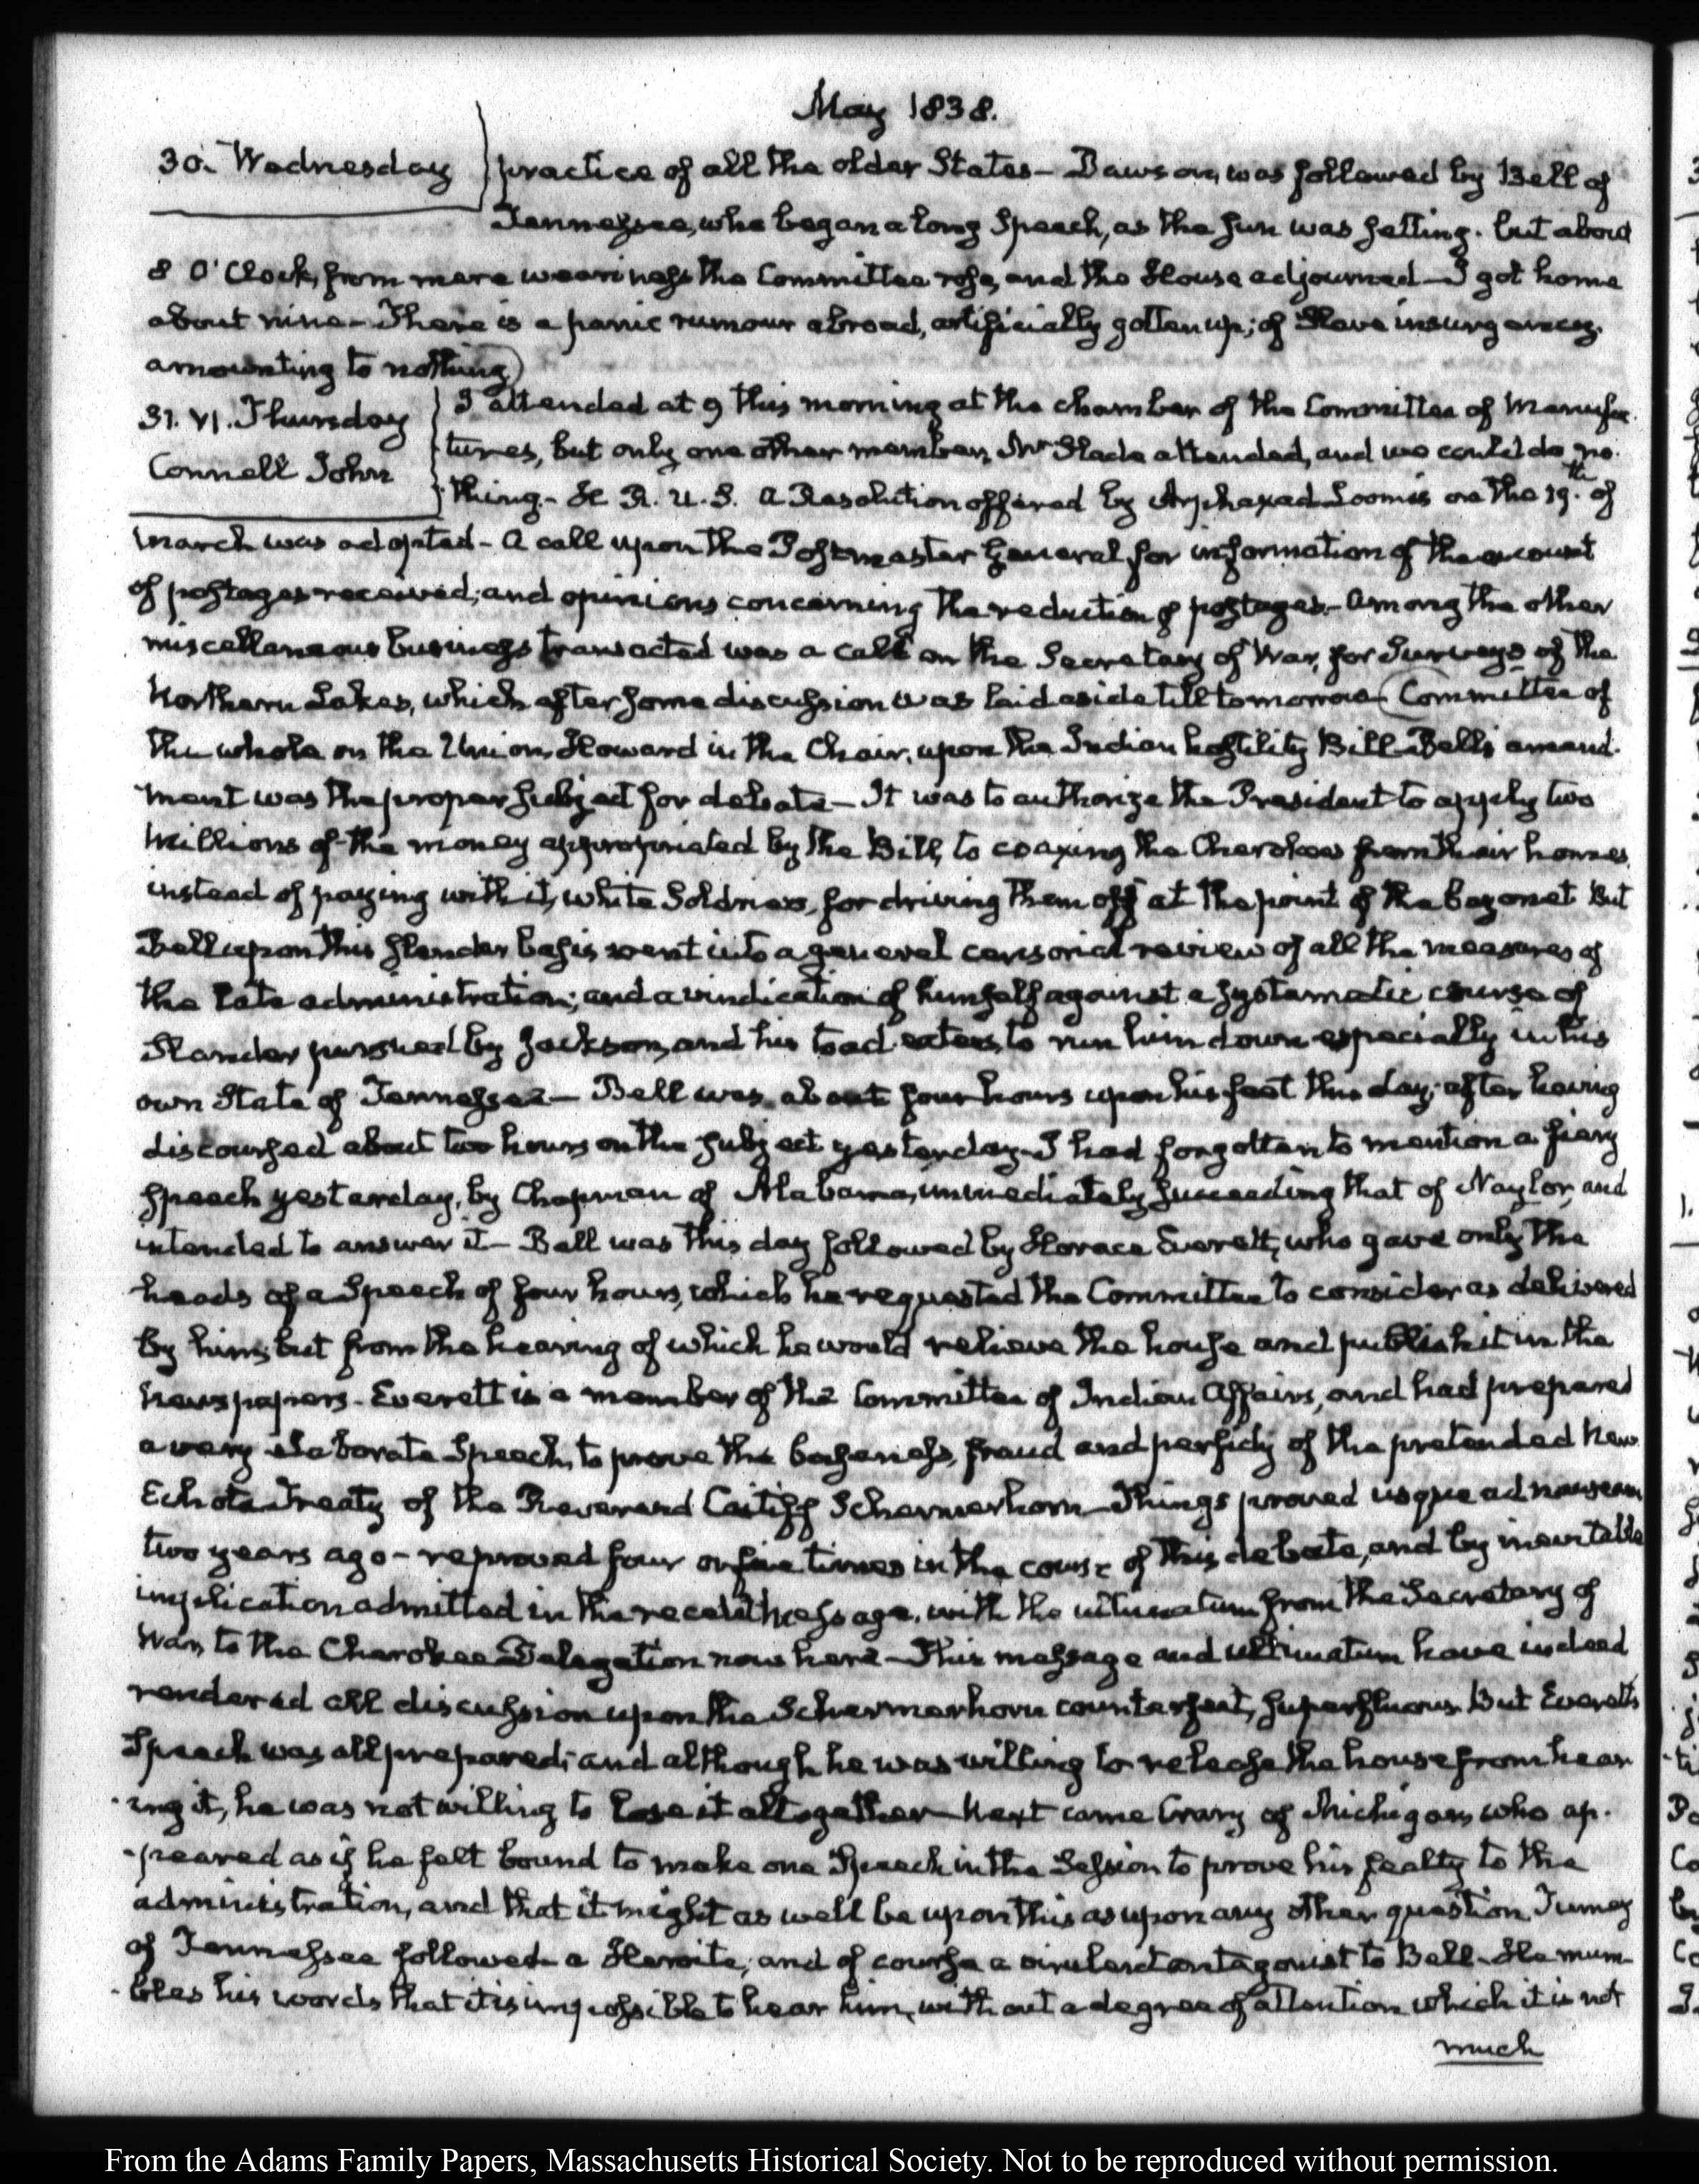 May 1838.
30. Wednesday
practice of all the older States— Dawson, was followed by Bell of
Tennessee, who began a long Speech, as the Sun was setting. but about
8 O'Clock, from mere weariness the Committee rose, and the House adjourned— I got home
about nine— There is a panic rumour abroad, artificially gotten up; of Slave insurgency.
amounting to nothing)
31. VI. Thursday
Connell John
I attended at 9 this morning at the chamber of the Committee of Manufac-
tures, but only one other member, Mr Slade attended, and we could do no-
thing.- H R. U.S. A Resolution offered by Arphaxad Loomis on the 19.th of
March was adopted— A call upon the Postmaster General for information of the amount
of postages received; and opinions concerning the reduction of postages.- Among the other
miscellaneous business transacted was a call on the Secretary of War, for Surveys of the
Northern Lakes, which after some discussion was laid aside till tomorrow (Committee of
the whole on the Union, Howard in the Chair, upon the Indian hostility Bill— Bell's amend-
ment was the proper subject for debate— It was to authorize the President to apply two
Millions of the money appropriated by the Bill, to coaxing the Cherokees from their homes,
instead of paying with it, white Soldiers, for driving them off at the point of the bayonet But
Bell upon this slender basis went into a general censorial review of all the measures of
the late administration; and a vindication of himself against a systematic course of
Slander pursued by Jackson, and his toad eaters, to run him down especially in his
own State of Tennessee— Bell was about four hours upon his feet this day; after having
discoursed about two hours on the subject yesterday— I had forgotten to mention a fiery
speech yesterday, by Chapman of Alabama, immediately succeeding that of Naylor, and
intended to answer it— Bell was this day followed by Horace Everett, who gave only the
heads of a Speech of four hours, which he requested the Committee to consider as delivered
by him; but from the hearing of which he would relieve the house and publish it in the
newspapers- Everett is a member of the Committee of Indian Affairs, and had prepared
a very elaborate Speech, to prove the baseness, fraud and perfidy of the pretended New
Echota Treaty of the Reverend Caitiff Schermerhorn— Things proved usque ad nauseam
two years ago— reproved four or five times in the course of this debate, and by inevitable
implication admitted in the recent message, with the ultimatum from the Secretary of
War, to the Cherokee Delegation now here— This message and ultimatum have indeed
rendered all discussion upon the Schermerhorn counterfeit, superfluous But Everett's
Speech was all prepared; and although he was willing to release the house from hear-
ing it, he was not willing to lose it altogether— Next came Crary of Michigan, who ap-
peared as if he felt bound to make one Speech in the Session to prove his fealty to the
administration, and that it might as well be upon this as upon any other question Turney
of Tennessee followed— a Heroite, and of course a virulent antagonist to Bell- He mum-
bles his words that it is impossible to hear him, without a degree of attention which it is not
much
From the Adams Family Papers, Massachusetts Historical Society. Not to be reproduced without permission.